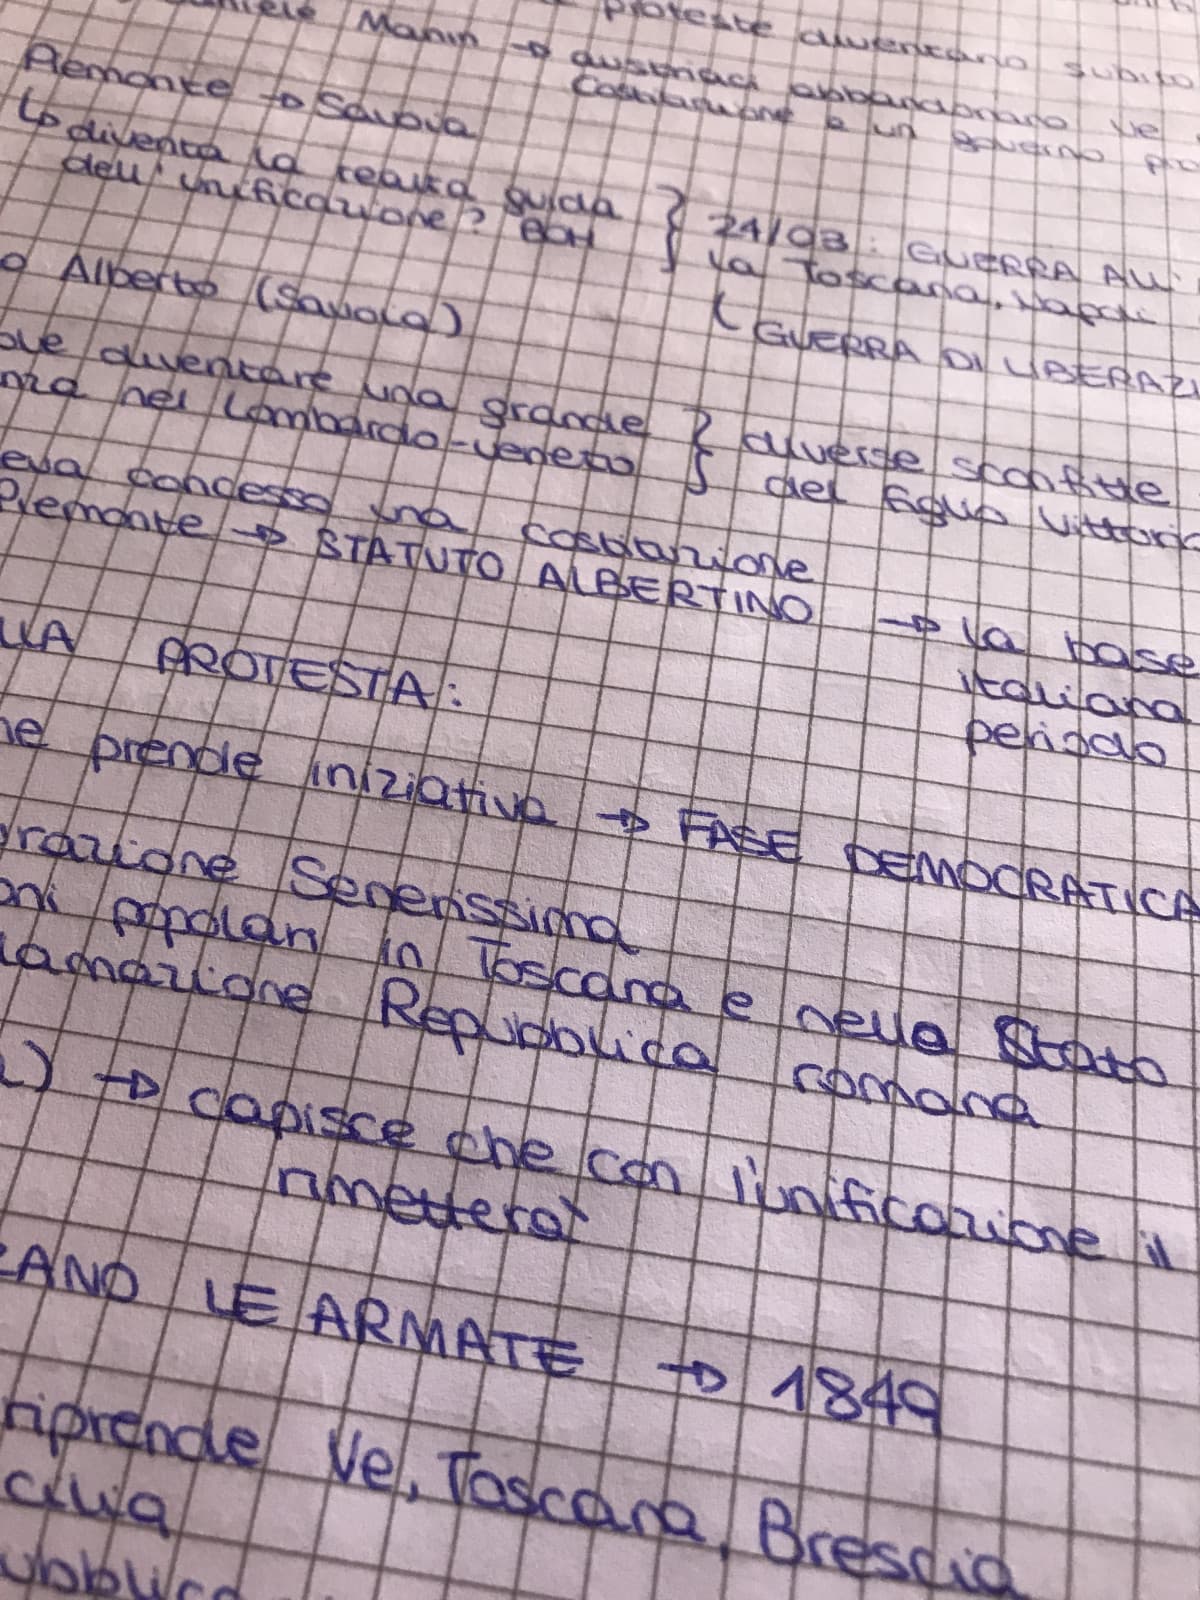 Manin → proteste diventano subito
austriaci abbandonano Ve
Costituzione e un governo
Piemonte → Savoia
↳ diventa la realtà guida
dell'unificazione? BOH
} 24/03: GUERRA ALL'
la Toscana, Napoli
( GUERRA DI LIBERAZI
o Alberto (Savoia)
ole diventare una grande
nza nel Lombardo-Veneto
} diverse sconfitte
del figlio Vittorio
eva concesso una costituzione
Piemonte → STATUTO ALBERTINO → la base
italiana
periodo
LLA PROTESTA:
ne prende iniziativa → FASE DEMOCRATICA
orazione Serenissima
oni popolari in Toscana e nello Stato
lamazione Repubblica romana
) → capisce che con l'unificazione il
rimetterà
CANO LE ARMATE → 1849
riprende Ve, Toscana, Brescia
cilia
ubblica